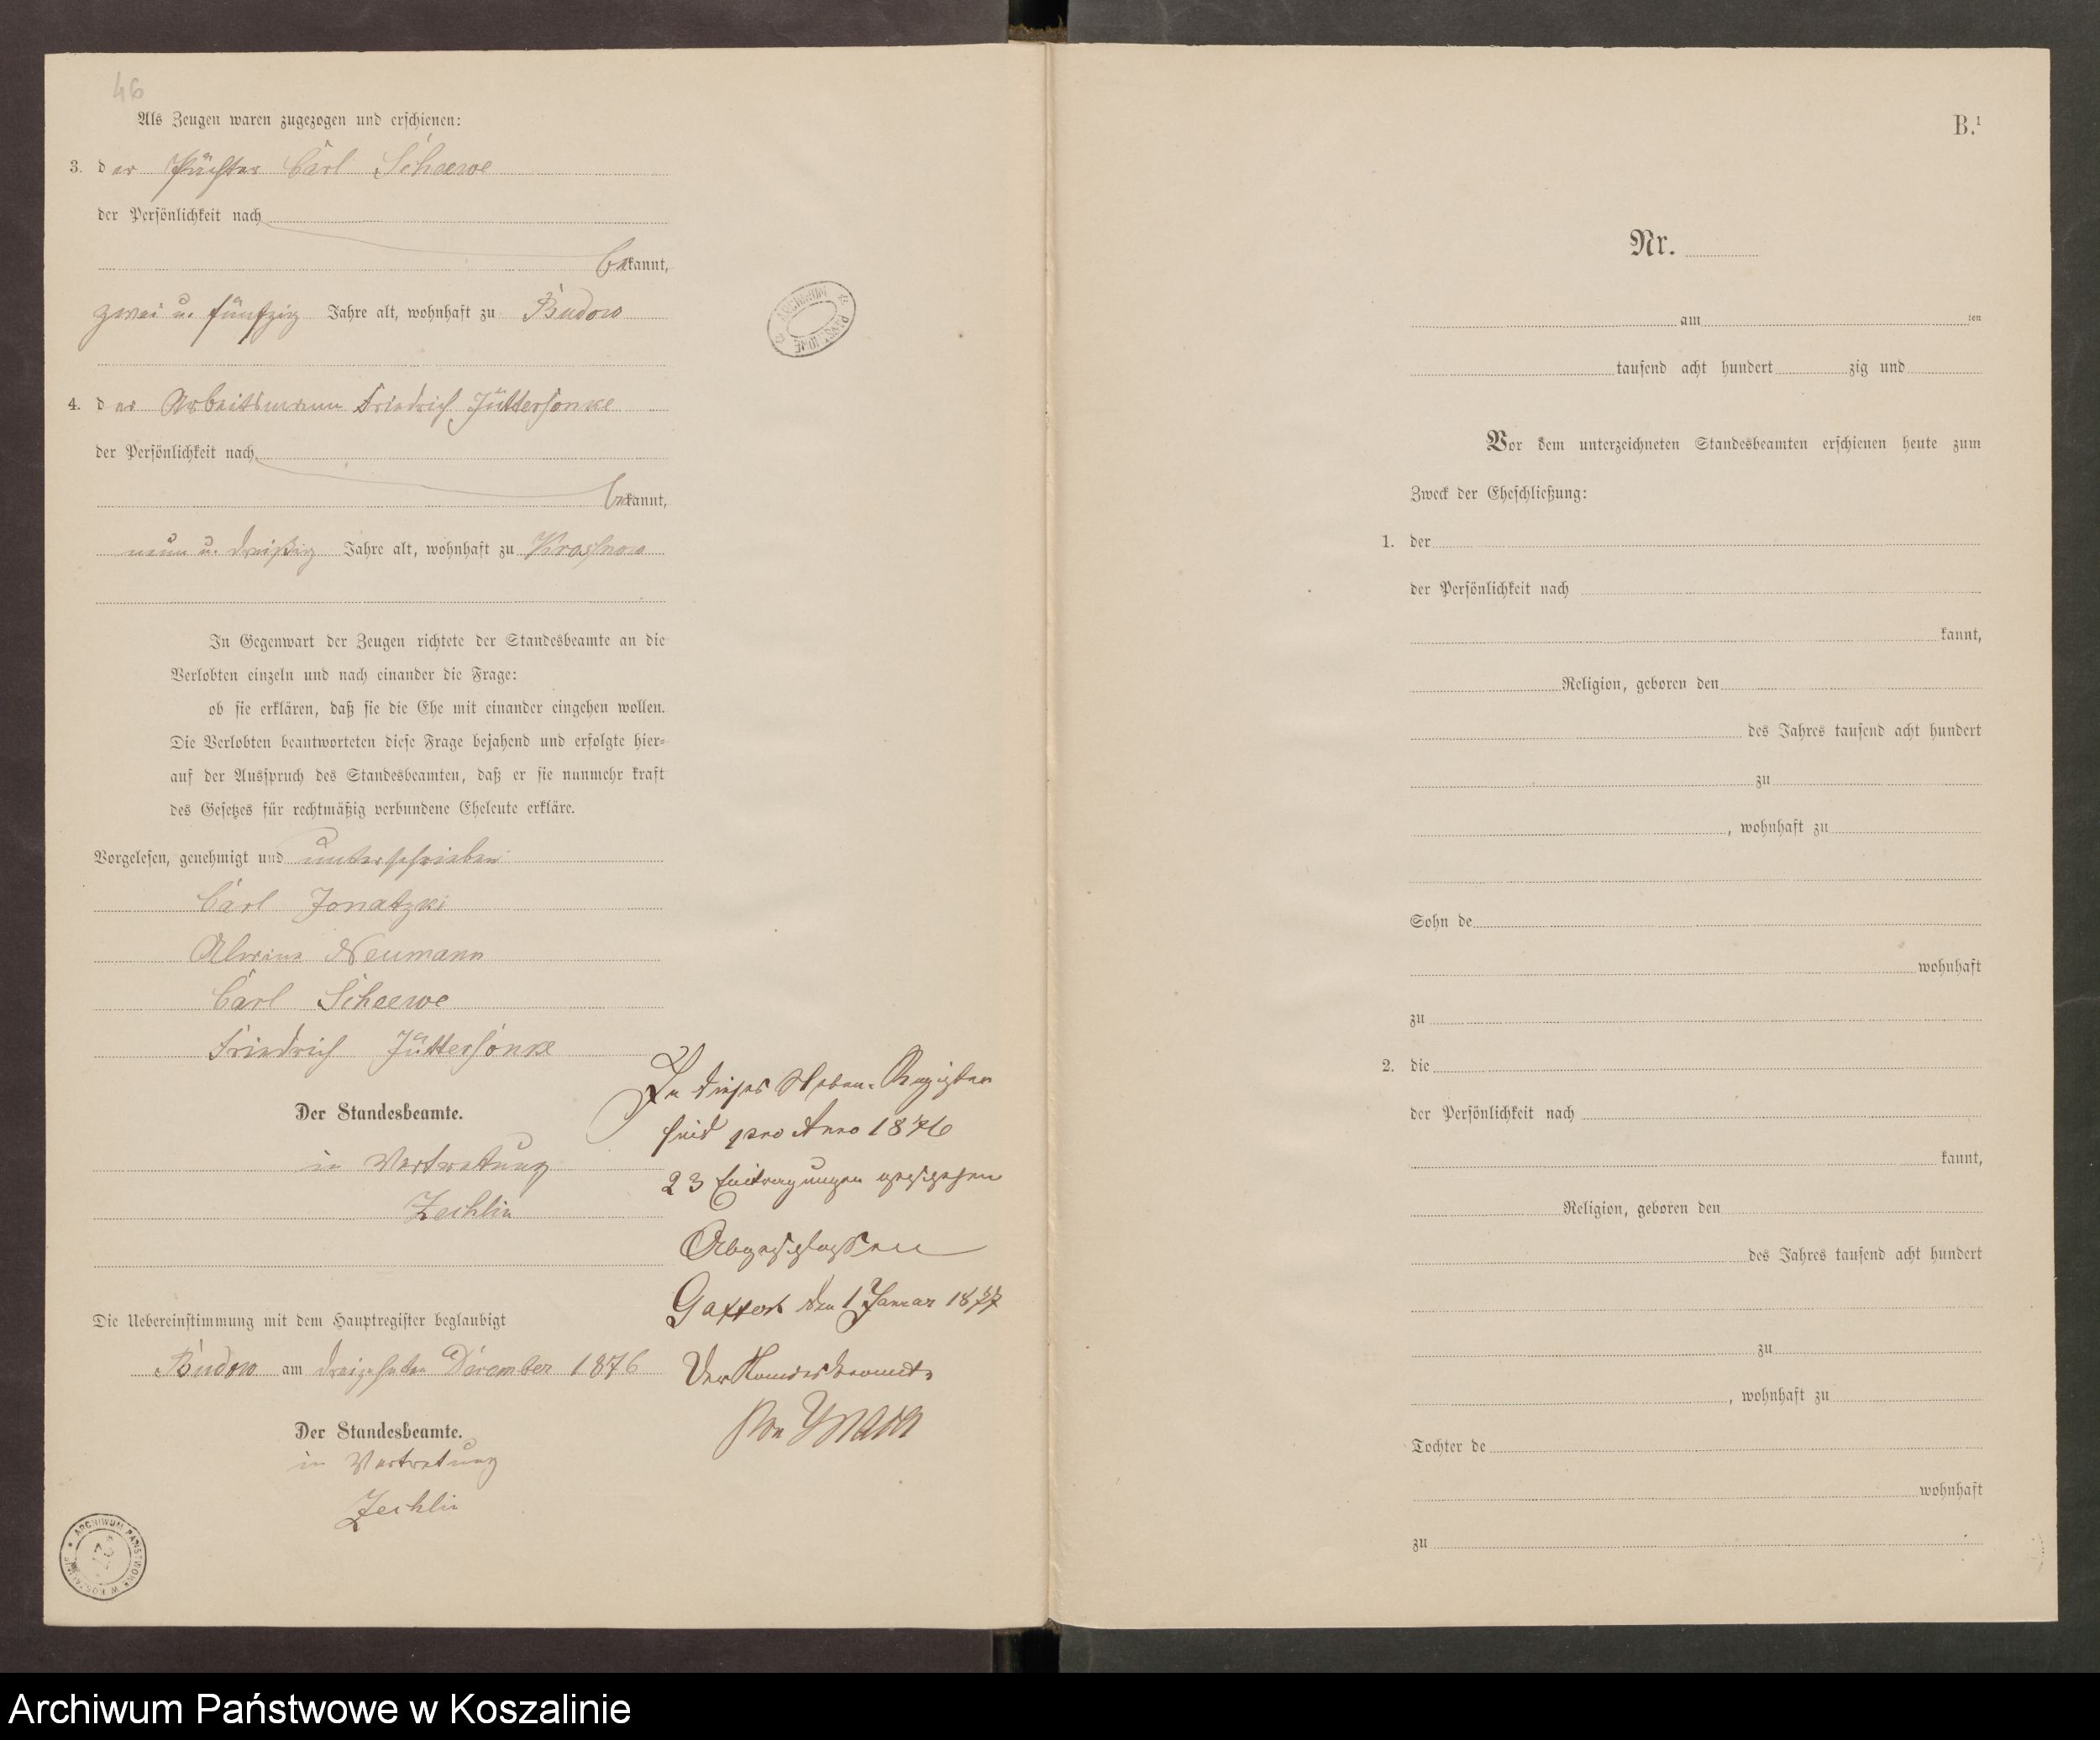 46
Als Zeugen waren zugezogen und erschienen:
3. der Pächter Carl Scheewe
der Persönlichkeit nach
bekannt,
zwei u. fünfzig Jahre alt, wohnhaft zu Budow
4. der Arbeitsmann Friedrich Jüttersonke
der Persönlichkeit nach
bekannt,
neun u. dreißig Jahre alt, wohnhaft zu Krosnow
In Gegenwart der Zeugen richtete der Standesbeamte an die
Verlobten einzeln und nach einander die Frage:
ob sie erklären, daß sie die Ehe mit einander eingehen wollen.
Die Verlobten beantworteten diese Frage bejahend und erfolgte hier-
auf der Ausspruch des Standesbeamten, daß er sie nunmehr kraft
des Gesetzes für rechtmäßig verbundene Eheleute erkläre.
Vorgelesen, genehmigt und unterschrieben
Carl Jonatzki
Alwine Neumann
Carl Scheewe
Friedrich Jüttersonke
Der Standesbeamte.
in Vertretung
Zechlin
Die Uebereinstimmung mit dem Hauptregister beglaubigt
Budow am dreizehnten December 1876
Der Standesbeamte.
in Vertretung
Zechlin
In dieses Neben-Register
sind pro Anno 1876
23 Eintragungen geschehen
Abgeschlossen
Gaffert den 1 Januar 1877
Der Standesbeamte
ARCHIWUM PAŃSTWOWE
ARCHIWUM PAŃSTWOWE W KOSZALINIE
B.¹
Nr.
am ten
tausend acht hundert zig und
Vor dem unterzeichneten Standesbeamten erschienen heute zum
Zweck der Eheschließung:
1. der
der Persönlichkeit nach
kannt,
Religion, geboren den
des Jahres tausend acht hundert
zu
, wohnhaft zu
Sohn de
wohnhaft
zu
2. die
der Persönlichkeit nach
kannt,
Religion, geboren den
des Jahres tausend acht hundert
zu
, wohnhaft zu
Tochter de
wohnhaft
zu
Archiwum Państwowe w Koszalinie